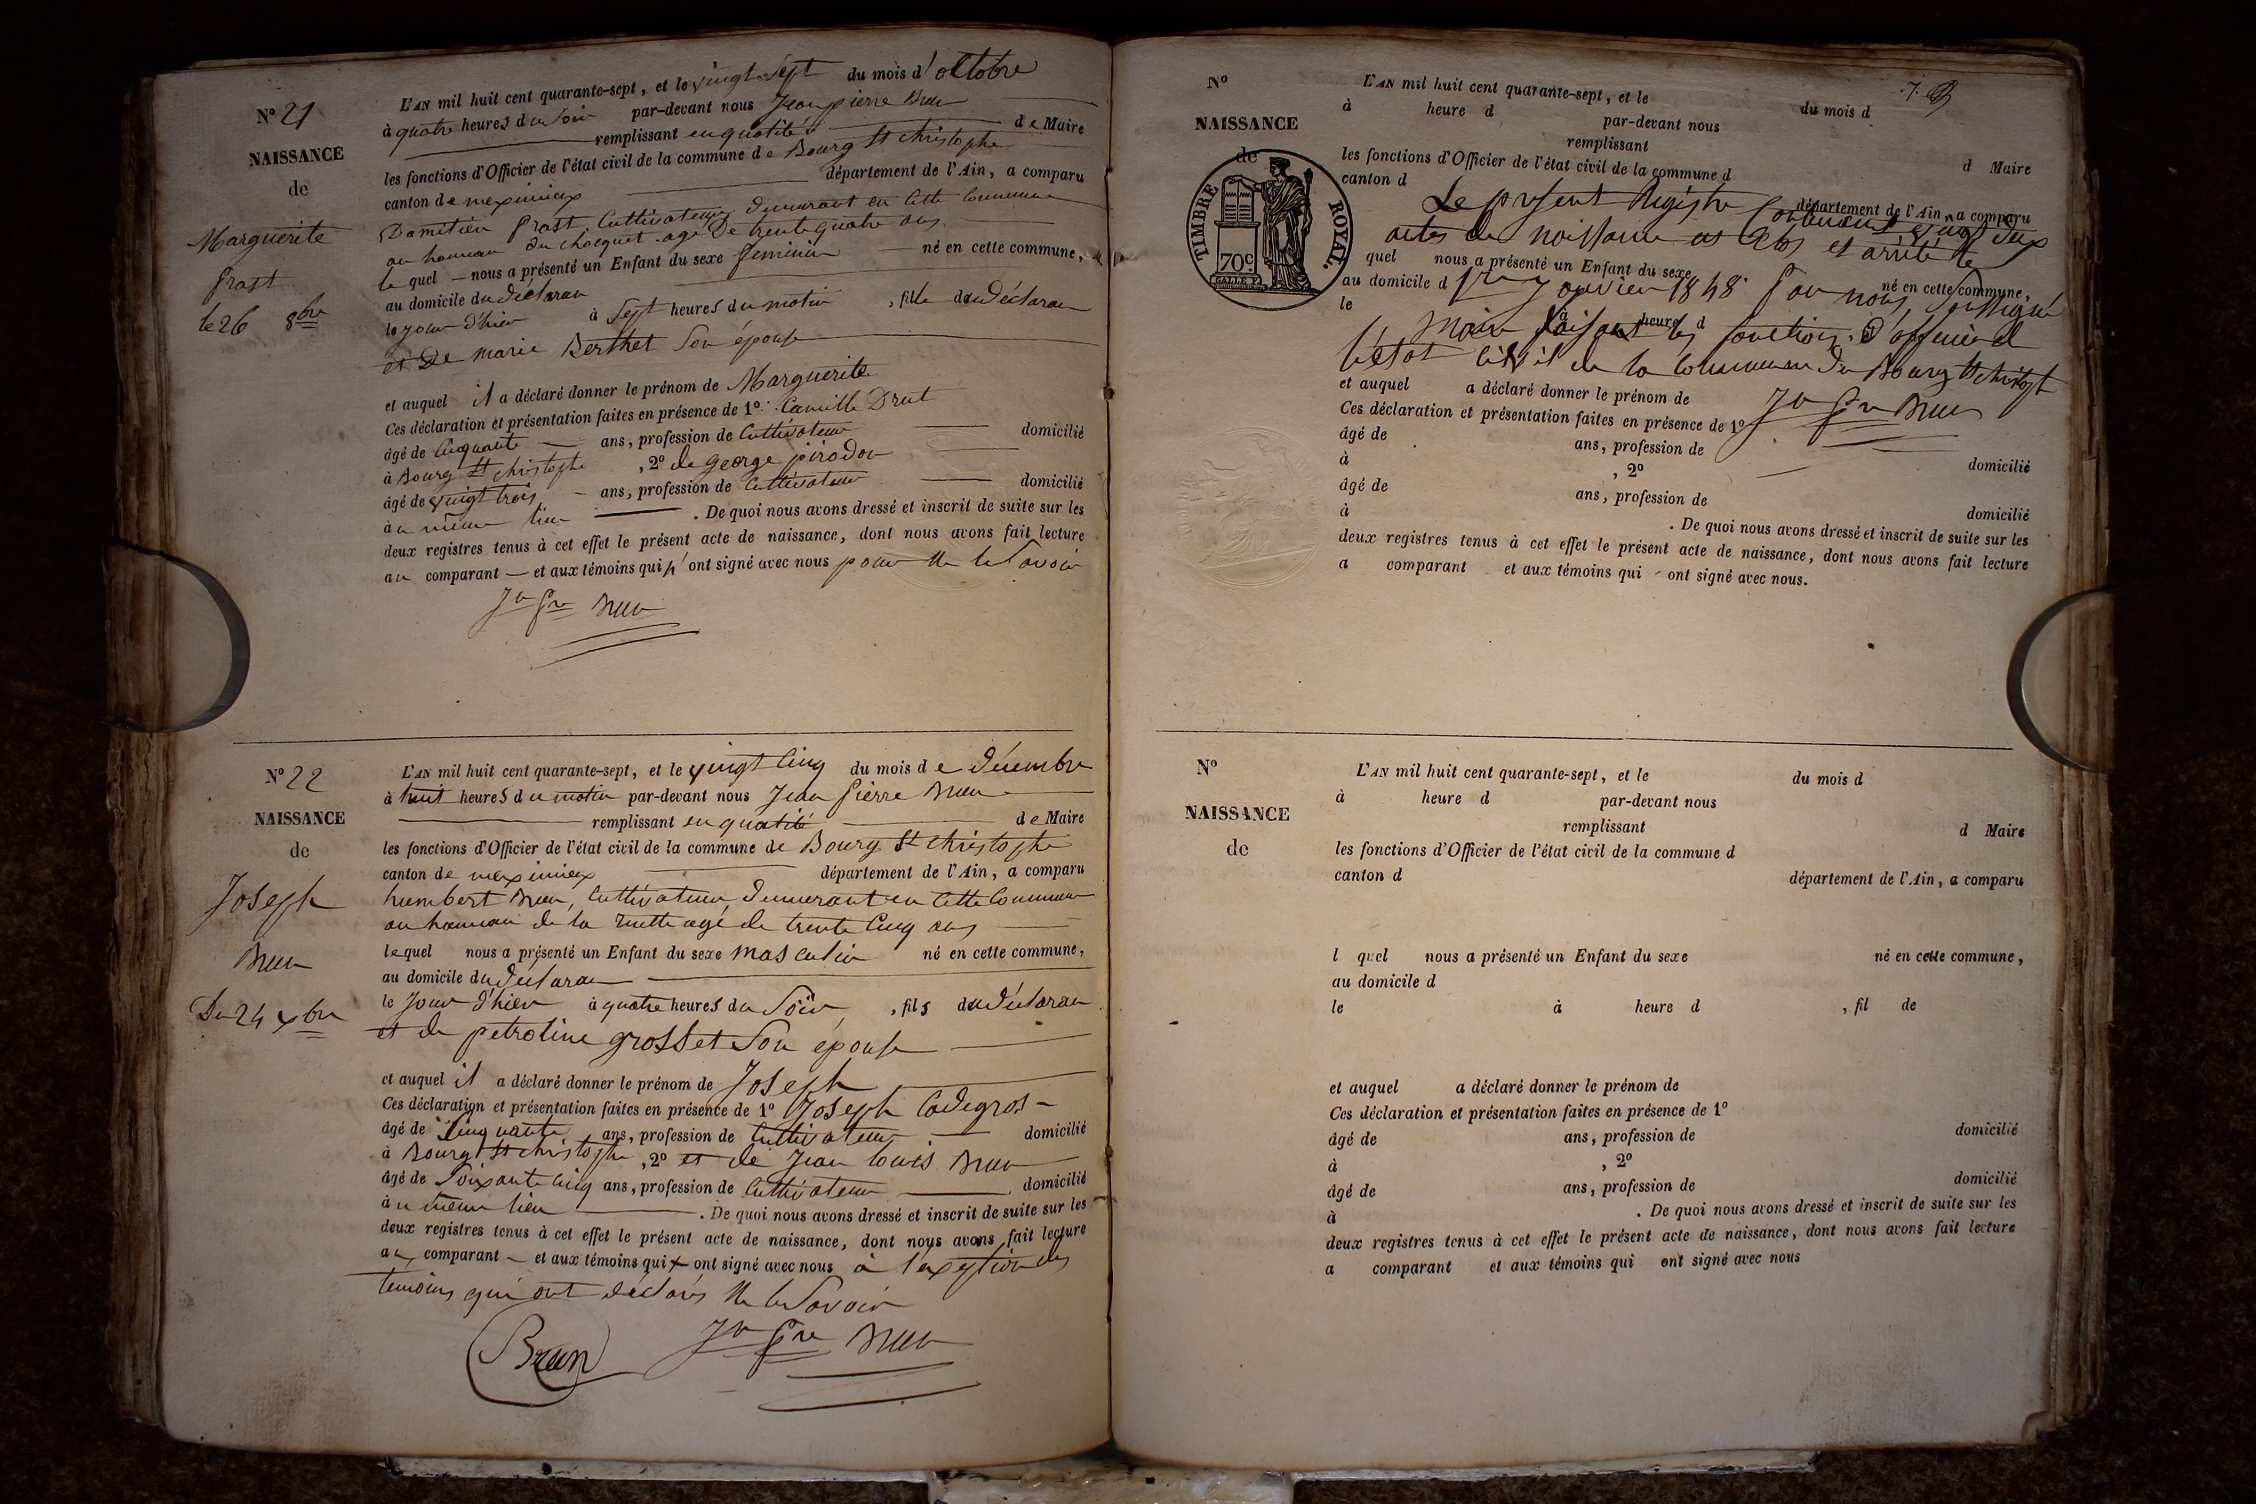 N° 21
NAISSANCE
de
Marguerite
Prost
le 26 8bre
L'AN mil huit cent quarante-sept, et le vingt sept du mois d'octobre
à quatre heures du soir par-devant nous Jean pierre Brun
remplissant en qualité de Maire
les fonctions d'Officier de l'état civil de la commune de Bourg St christophe
canton de meximieux département de l'Ain, a comparu
Damitien Prost Cultivateur, demeurant en cette commune
au hameau du chocquet agé De trente quatre ans
le quel nous a présenté un Enfant du sexe feminin né en cette commune,
au domicile du déclaran
le jour d'hier à sept heures du matin, fille du déclaran
et De marie Berthet Son épouse
et auquel il a déclaré donner le prénom de Marguerite
Ces déclaration et présentation faites en présence de 1° Camille Drut
âgé de cinquante ans, profession de Cultivateur domicilié
à Bourg St christophe, 2° de george pirodon
âgé de vingt trois ans, profession de Cultivateur domicilié
au même lieu. De quoi nous avons dressé et inscrit de suite sur les
deux registres tenus à cet effet le présent acte de naissance, dont nous avons fait lecture
au comparant et aux témoins qui n'ont signé avec nous pour ne le Savoir
Jn Pre Brun
N° 22
NAISSANCE
de
Joseph
Brun
Du 24 xbre
L'AN mil huit cent quarante-sept, et le vingt cinq du mois de décembre
à huit heures du matin par-devant nous Jean Pierre Brun
remplissant en qualité de Maire
les fonctions d'Officier de l'état civil de la commune de Bourg St christophe
canton de meximieux département de l'Ain, a comparu
humbert Brun, Cultivateur, demeurant en cette commune
au hameau de la ruette agé de trente cinq ans
lequel nous a présenté un Enfant du sexe masculin né en cette commune,
au domicile du déclaran
le Jour d'hier à quatre heures du Soir, fils du déclaran
et de petroline grosset Son épouse
et auquel il a déclaré donner le prénom de Joseph
Ces déclaration et présentation faites en présence de 1° Joseph Cadegros
âgé de Cinquante ans, profession de Cultivateur domicilié
à Bourg St christophe, 2° et de Jean louis Brun
âgé de Soixante cinq ans, profession de Cultivateur domicilié
au même lieu. De quoi nous avons dressé et inscrit de suite sur les
deux registres tenus à cet effet le présent acte de naissance, dont nous avons fait lecture
au comparant et aux témoins qui ont signé avec nous à l'exeption des
temoins qui ont déclarés ne le Savoir
Brun Jn Pre Brun
N°
NAISSANCE
de
TIMBRE ROYAL.
70c
L'AN mil huit cent quarante-sept, et le du mois d
à heure d par-devant nous
remplissant d Maire
les fonctions d'Officier de l'état civil de la commune d
canton d département de l'Ain, a comparu
Le present Registre Contenant vingt deux
actes de naissance est Clos et arrêté le
quel nous a présenté un Enfant du sexe né en cette commune,
au domicile d
1er Janvier 1848 Par nous, Soussigné
le à heure d
Maire faisant les fonctions d'officier de
l'état Civil de la Commune De Bourg St christophe
et auquel a déclaré donner le prénom de
Jn Pre Brun
Ces déclaration et présentation faites en présence de 1°
âgé de ans, profession de domicilié
à , 2°
âgé de ans, profession de domicilié
à . De quoi nous avons dressé et inscrit de suite sur les
deux registres tenus à cet effet le présent acte de naissance, dont nous avons fait lecture
a comparant et aux témoins qui ont signé avec nous.
N°
NAISSANCE
de
L'AN mil huit cent quarante-sept, et le du mois d
à heure d par-devant nous
remplissant d Maire
les fonctions d'Officier de l'état civil de la commune d
canton d département de l'Ain, a comparu
l quel nous a présenté un Enfant du sexe né en cette commune,
au domicile d
le à heure d , fil de
et auquel a déclaré donner le prénom de
Ces déclaration et présentation faites en présence de 1°
âgé de ans, profession de domicilié
à , 2°
âgé de ans, profession de domicilié
à . De quoi nous avons dressé et inscrit de suite sur les
deux registres tenus à cet effet le présent acte de naissance, dont nous avons fait lecture
a comparant et aux témoins qui ont signé avec nous